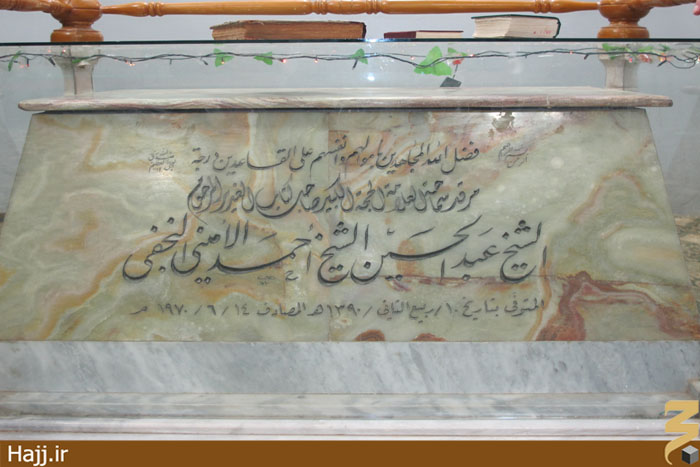 فضل الله المجاهدين باموالهم وانفسهم على القاعدين درجة
مرقد سماحة العلامة الحجة الكبير صاحب كتاب الغدير المرحوم
الشيخ عبد الحسين الشيخ أحمد الأميني النجفي
المتوفى بتاريخ ١٠/ربيع الثاني/١٣٩٠هـ المصادف ١٤/٦/١٩٧٠ مـ
Hajj.ir